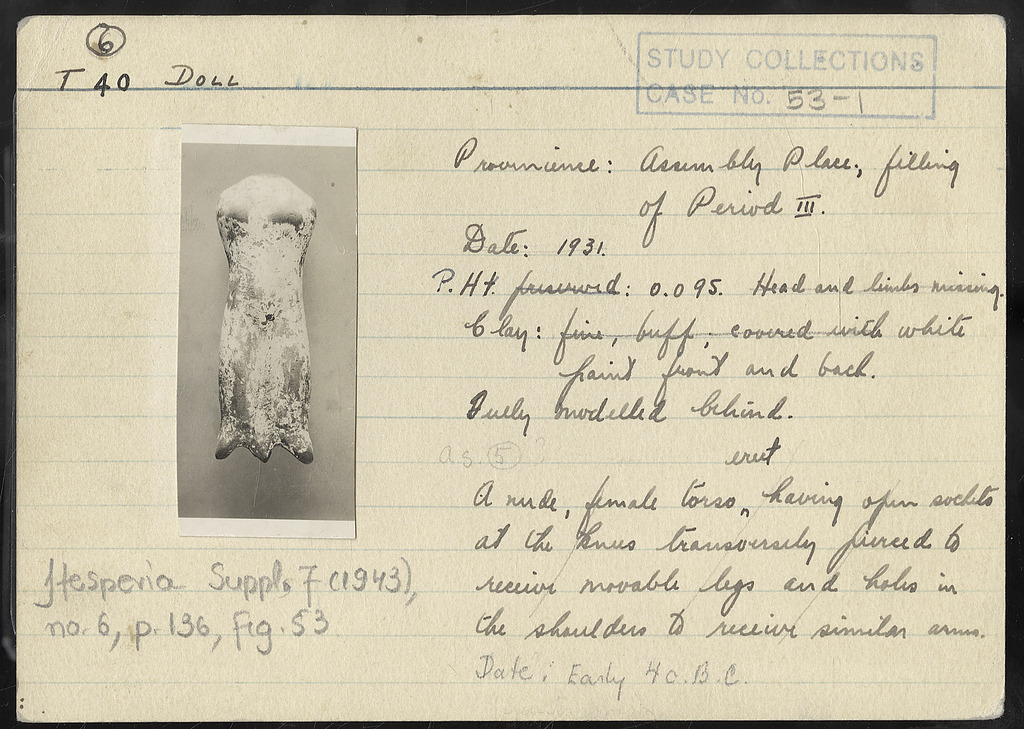 6
T 40 DOLL
STUDY COLLECTIONS
CASE No. 53-1
Provenience: Assembly Place, filling
of Period III.
Date: 1931.
P.Ht. preserved: 0.095. Head and limbs missing.
Clay: fine, buff, covered with white
paint front and back.
modelled behind.
As 5
erect
A nude, female torso, having open sockets
at the knees transversely pierced to
receive movable legs and holes in
the shoulders to receive similar arms.
Date: Early 4 c. B.C.
Hesperia Suppl. 7 (1943),
no. 6, p. 136, fig. 53